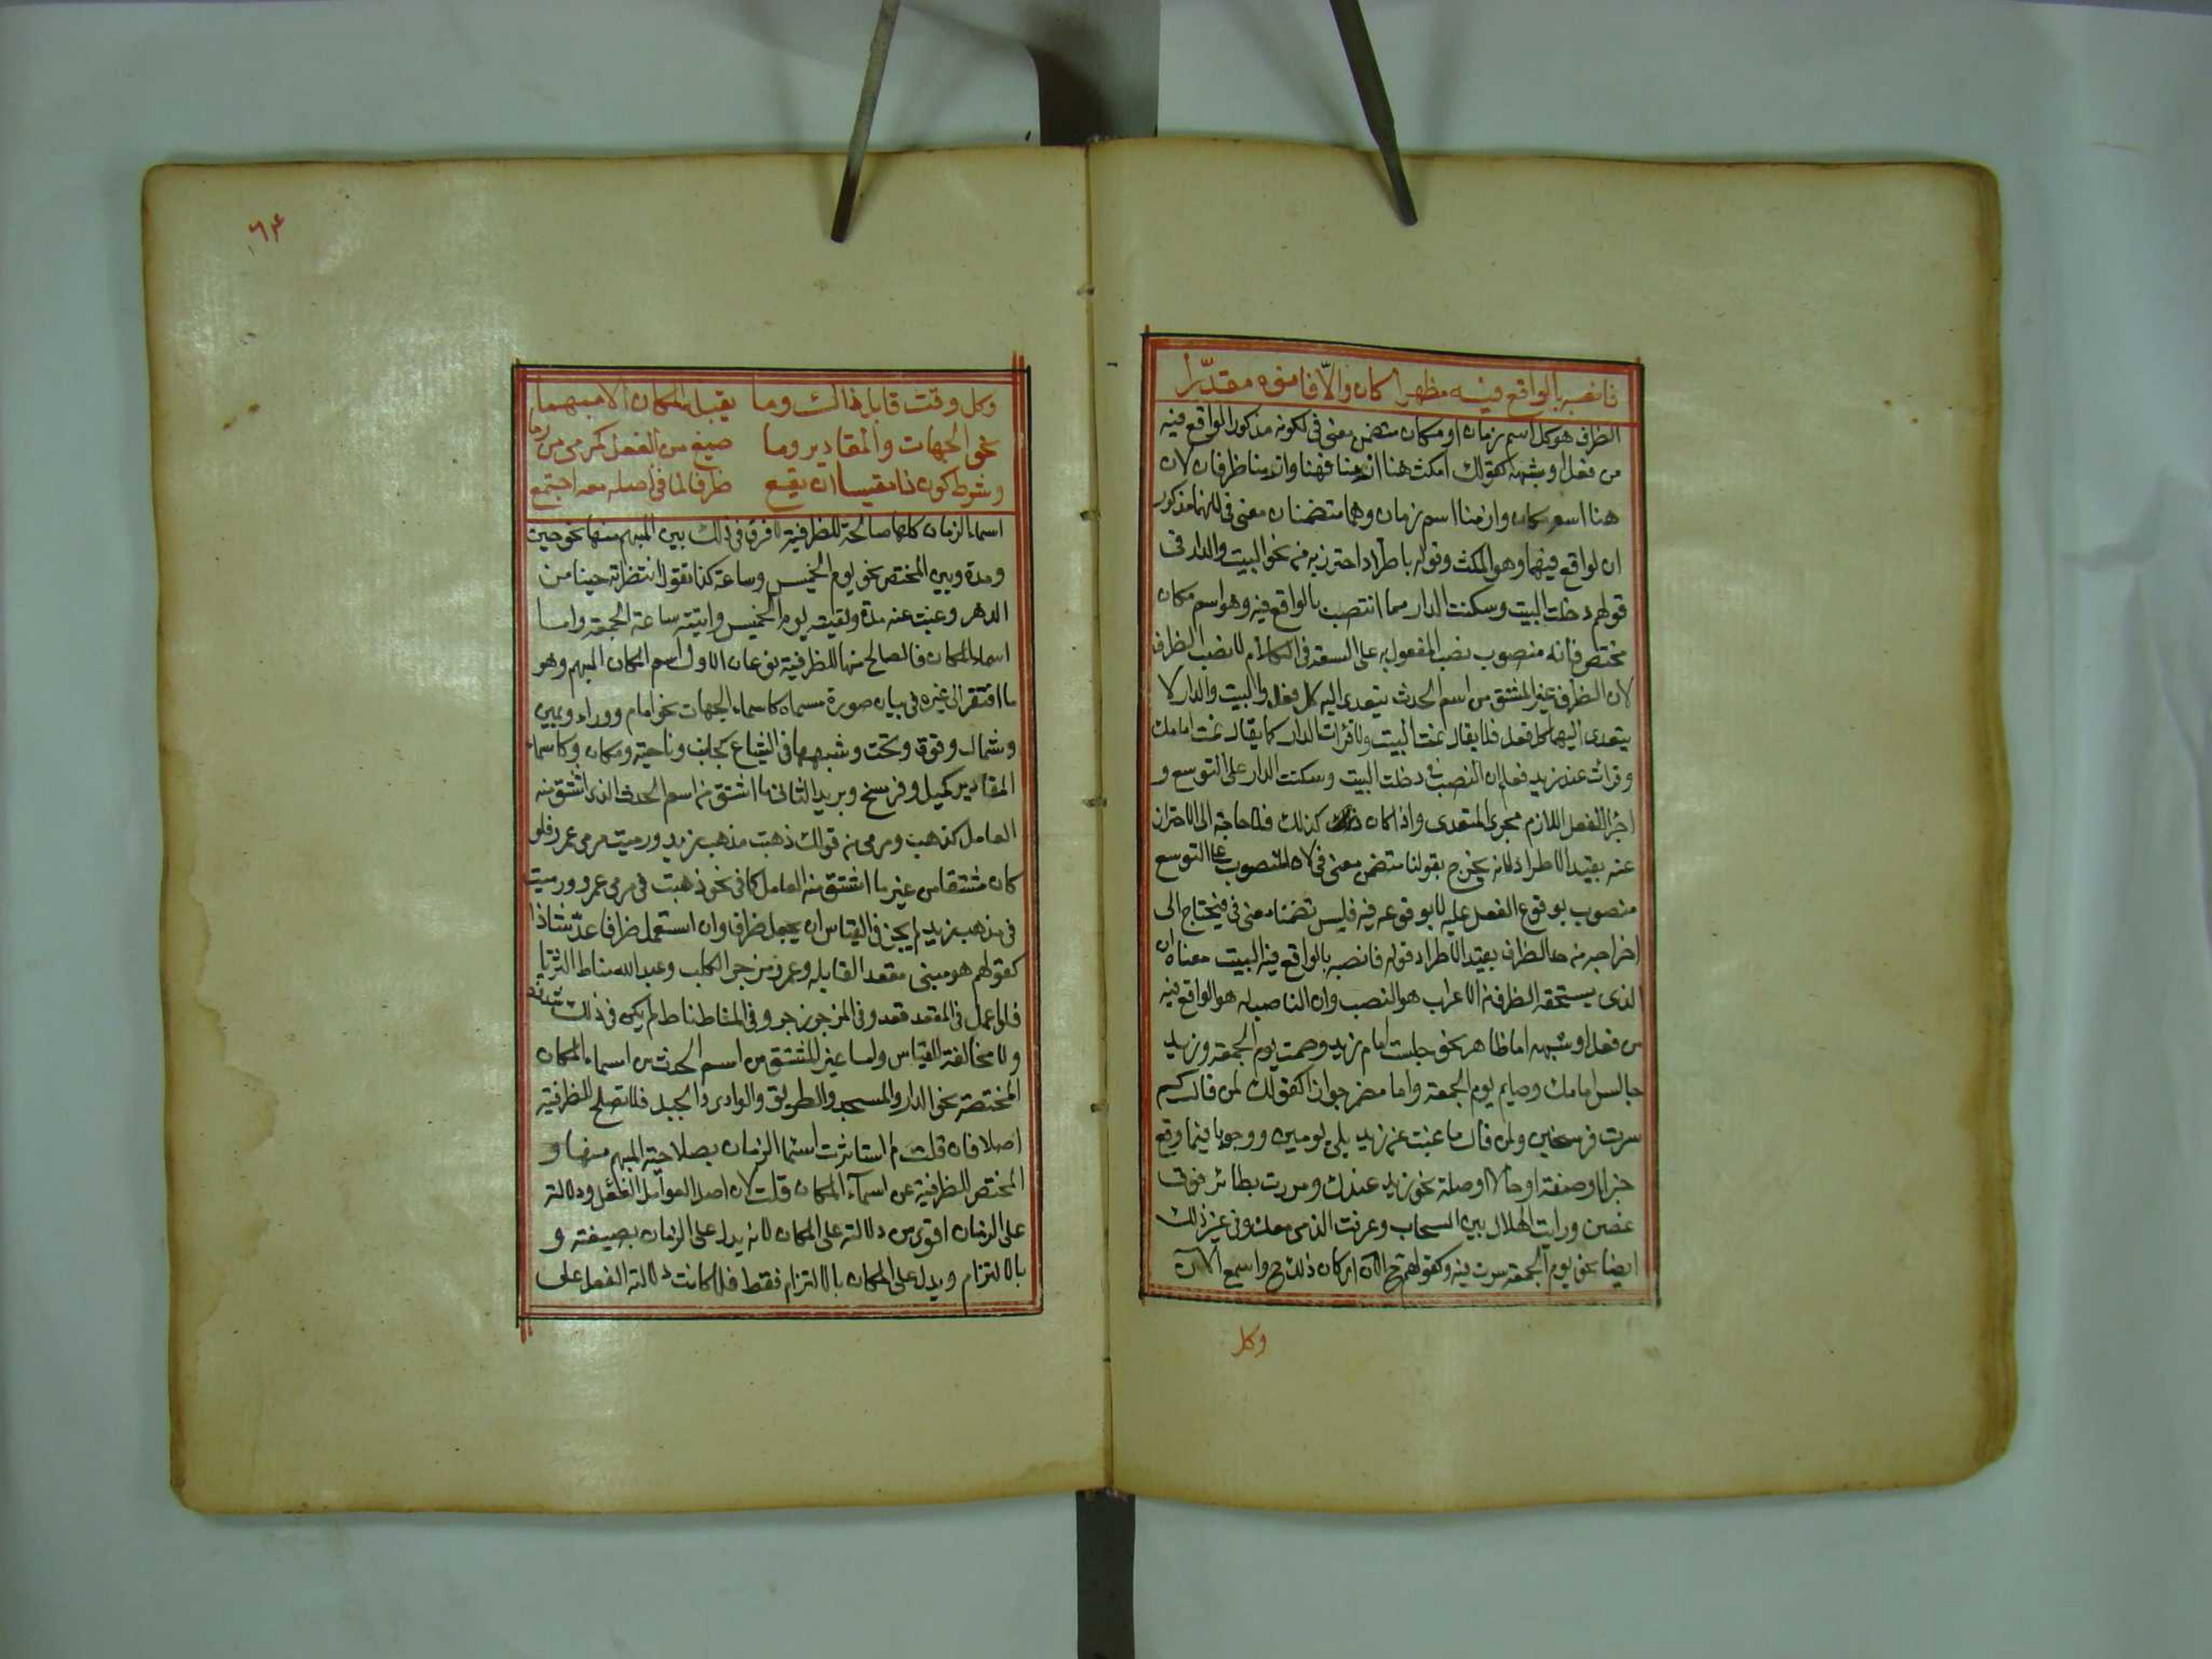 فانصبه بالواقع فيه مظهرا كان والّا فانوه مقدّرا
الظرف هو كل اسم زمان او مكان متضمن معنى فى لكونه مذكورا لواقع فيه
من فعل او شبهه كقولك امكث هنا ازمنا فهنا وازمنا ظرفان لان
هنا اسم مكان وازمنا اسم زمان وهما متضمنان معنى فى لانهما مذكور
ان لواقع فيهما وهو المكث وقوله باطراد احترز به من نحو البيت والدار فى
قولهم دخلت البيت وسكنت الدار مما انتصب بالواقع فيه وهو اسم مكان
مختص فانه منصوب نصب المفعول به على السعة فى الكلام لا نصب الظرف
لان الظرف غير المشتق من اسم الحدث يتعدى اليه كل فعل والبيت والدار لا
يتعدى اليهما كل فعل فلا يقال نمت البيت ولا قرات الدار كما يقال نمت امامك
وقرات عند زيد فعلم ان النصب فى دخلت البيت وسكنت الدار على التوسع و
اجرا الفعل اللازم مجرى المتعدى واذا كان كذلك فلا حاجة الى الاحتراز
عنه بقيد الاطراد لانه يخرج بقولنا متضمن معنى فى لان المنصوب على التوسع
منصوب بوقوع الفعل عليه لا بوقوعه فيه فليس متضمنا معنى فى فيحتاج الى
اخراجه من حد الظرف بقيد الاطراد قوله فانصبه بالواقع فيه البيت معناه ان
الذى يستحقه الظرف من الاعراب هو النصب وان الناصب له هو الواقع فيه
من فعل او شبهه اما ظاهر نحو جلست امام زيد وصمت يوم الجمعة وزيد
جالس امامك وصايم يوم الجمعة واما مضمر جوازا كقولك لمن قال كم
سرت فرسخين ولمن قال ما غبت عن زيد بلى يومين ووجوبا فيما وقع
خبرا او صفة او حالا او صلة نحو زيد عندك ومررت بطائر فوق
غصن ورايت الهلال بين السحاب وعرفت الذى معك وفى غير ذلك
ايضا نحو يوم الجمعة سرت فيه وكقولهم ح الآن اى كان ذلك ح واسمع الآن
وكل
وكل وقت قابل ذاك وما يقبله المكان الا مبهما
نحو الجهات والمقادير وما صيغ من الفعل كرمى من رما
وشرط كون ذا مقيسا ان يقع ظرفا لما فى اصله معه اجتمع
اسماء الزمان كلها صالحة للظرفية لا فرق فى ذلك بين المبهم منها نحو حين
ومدة وبين المختص نحو يوم الخميس وساعة كذا تقول انتظرته حينا من
الدهر وغبت عنه مدة ولقيته يوم الخميس واتيته ساعة الجمعة واما
اسماء المكان فالصالح منها للظرفية نوعان الاول اسم المكان المبهم وهو
ما افتقر الى غيره فى بيان صورة مسماه كاسماء الجهات نحو امام ووراء ويمين
وشمال وفوق وتحت وشبهها فى الشياع كجانب وناحية ومكان وكاسماء
المقادير كميل وفرسخ وبريد الثانى ما اشتق من اسم الحدث الذى اشتق منه
العامل كذهب ومرمى من قولك ذهبت مذهب زيد ورميت مرمى عمرو فلو
كان مشتقا من غير ما اشتق منه العامل كما فى نحو ذهبت فى مرمى عمرو ورميت
فى مذهب زيد لم يجز فى القياس ان يجعل ظرفا وان استعمل ظرفا عدّ شاذا
كقولهم هو منى مقعد القابلة وعمرو مزجر الكلب وعبد الله مناط الثريا
فلو اعمل فى المقعد قعد وفى المزجر زجر وفى المناط ناط لم يكن فى ذلك شذوذ
ولا مخالفة القياس واما غير المشتق من اسم الحدث من اسماء المكان
المختصة نحو الدار والمسجد والطريق والوادى والجبل فلا تصلح للظرفية
اصلا فان قلت لم استاثرت اسما الزمان بصلاحية المبهم منها و
المختص للظرفية عن اسماء المكان قلت لان اصل العوامل الفعل ودلالته
على الزمان اقوى من دلالته على المكان لانه يدل على الزمان بصيغته و
بالالتزام ويدل على المكان بالالتزام فقط فلما كانت دلالة الفعل على